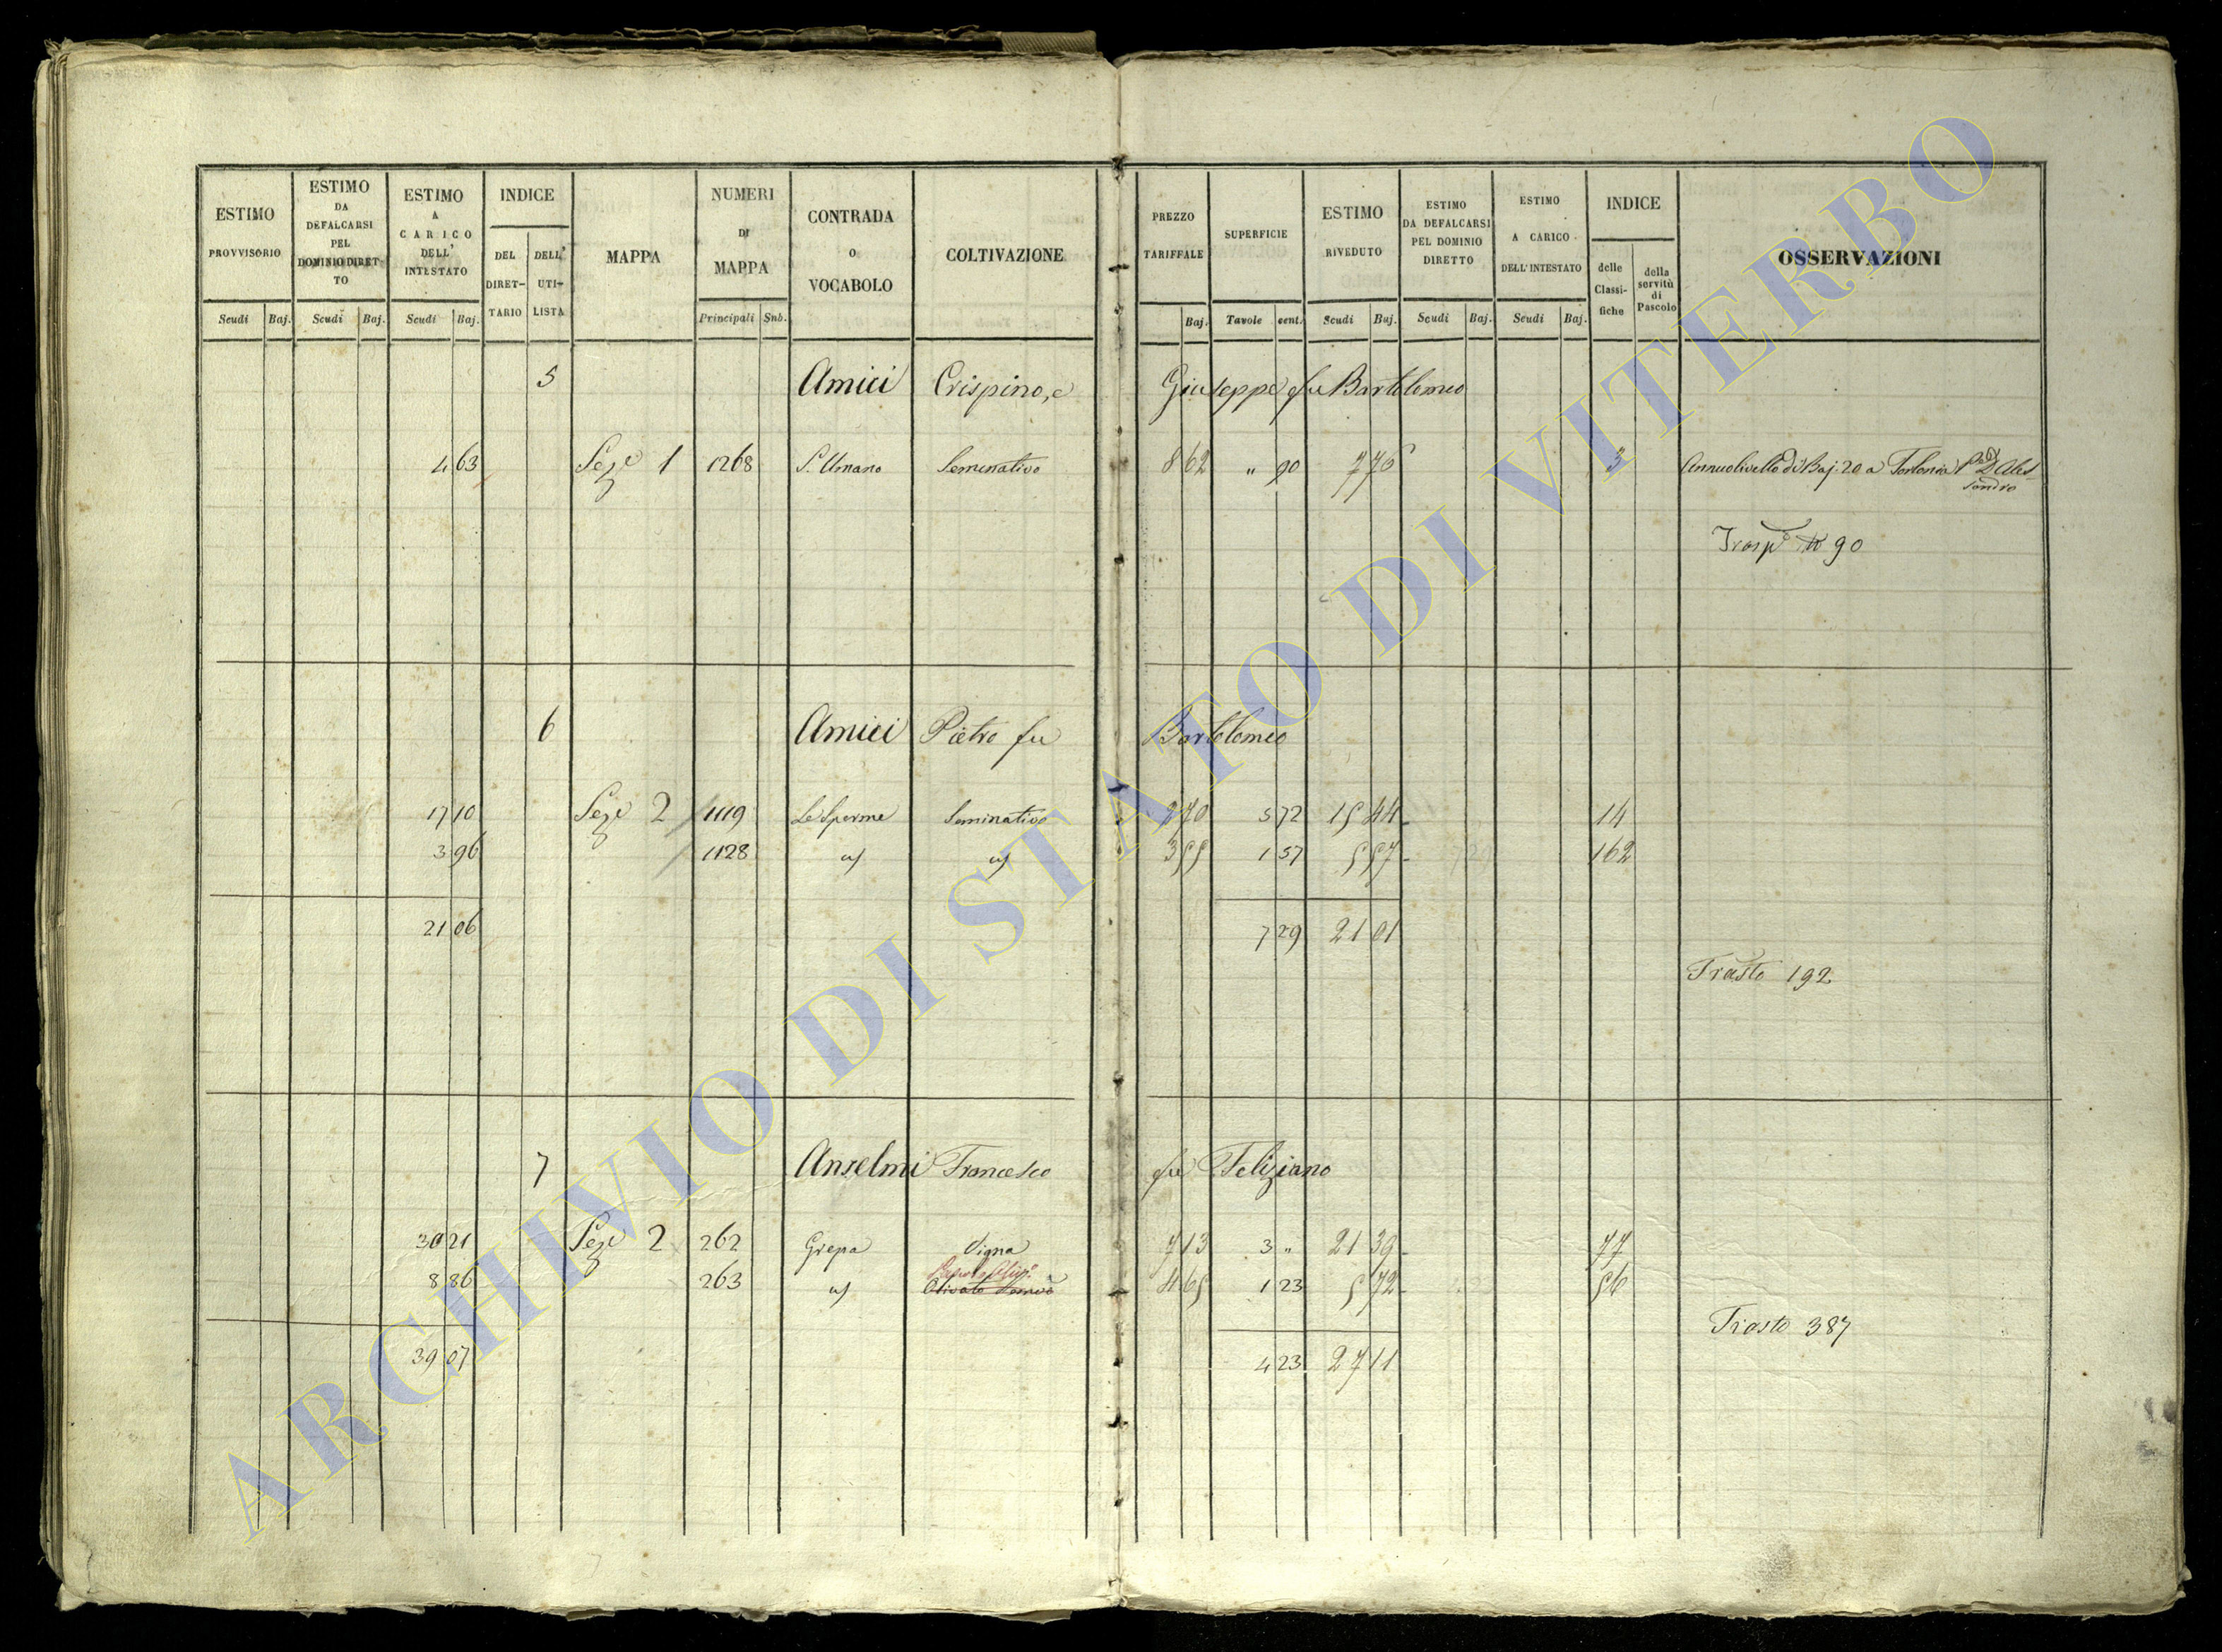 ESTIMO PROVVISORIO
Scudi Baj.
ESTIMO DA DEFALCARSI PEL DOMINIO DIRETTO
Scudi Baj.
ESTIMO A CARICO DELL' INTESTATO
Scudi Baj.
INDICE
DEL DIRETTARIO
DELL' UTILISTA
MAPPA
NUMERI DI MAPPA
Principali Snb.
CONTRADA o VOCABOLO
COLTIVAZIONE
PREZZO TARIFFALE
Baj.
SUPERFICIE
Tavole cent.
ESTIMO RIVEDUTO
Scudi Baj.
ESTIMO DA DEFALCARSI PEL DOMINIO DIRETTO
Scudi Baj.
ESTIMO A CARICO DELL'INTESTATO
Scudi Baj.
INDICE
delle Classifiche
della servitù di Pascolo
OSSERVAZIONI
5 Amici Crispino, e Giuseppe fu Bartolomeo
4 63 Seze 1 1268 S. Umano Seminativo 8 62 " 90 7 76 3 Annuo livello di Baj. 20 a Torlonia
90
6 Amici Pietro fu Bartolomeo
17 10 Seze 2 1119 Le Sperme Seminativo 2 70 5 72 15 44 14
3 96 1128 3 55 1 57 5 57 162
21 06 7 29 21 01
Trasto 192
7 Anselmi Francesco fu Feliziano
30 21 Seze 2 262 Grepa Vigna 7 13 3 " 21 39 77
8 86 263 Olivato 4 65 1 23 5 72 56
Trasto 387
39 07 4 23 27 11
ARCHIVIO DI STATO DI VITERBO